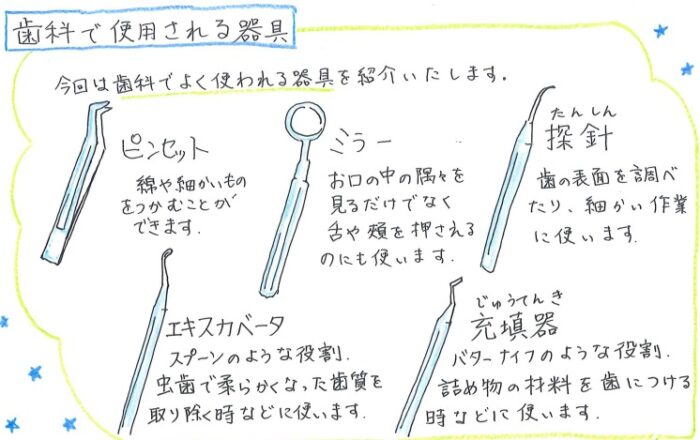 歯科で使用される器具
今回は歯科でよく使われる器具を紹介いたします。
ピンセット
綿や細かいもの
をつかむことが
できます。
ミラー
お口の中の隅々を
見るだけでなく
舌や頬を押さえる
のにも使います。
たんしん
探針
歯の表面を調べ
たり、細かい作業
に使います。
エキスカベータ
スプーンのような役割。
虫歯で柔らかくなった歯質を
取り除く時などに使います。
じゅうてんき
充填器
バターナイフのような役割。
詰め物の材料を歯につける
時などに使います。